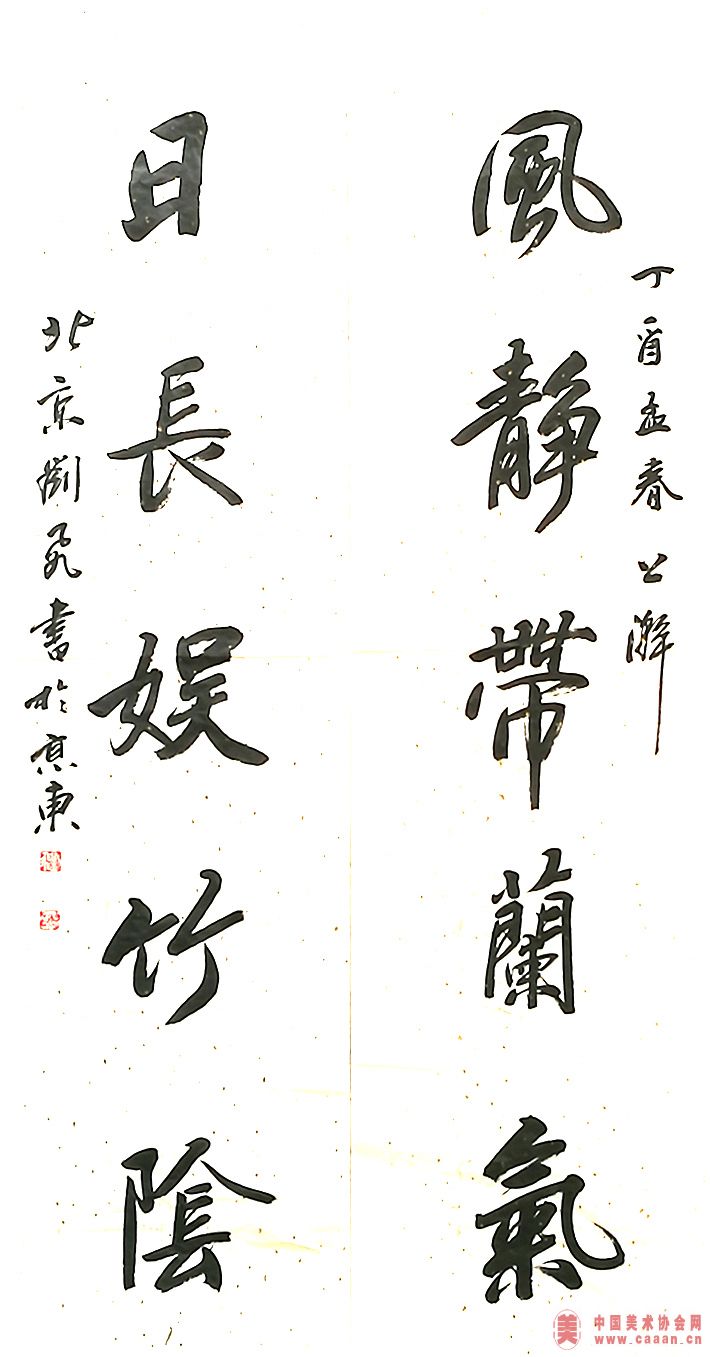 丁酉孟春
風靜帶蘭氣
日長娛竹陰
北京劉飛書於京東
中国美术协会网
www.caaan.cn